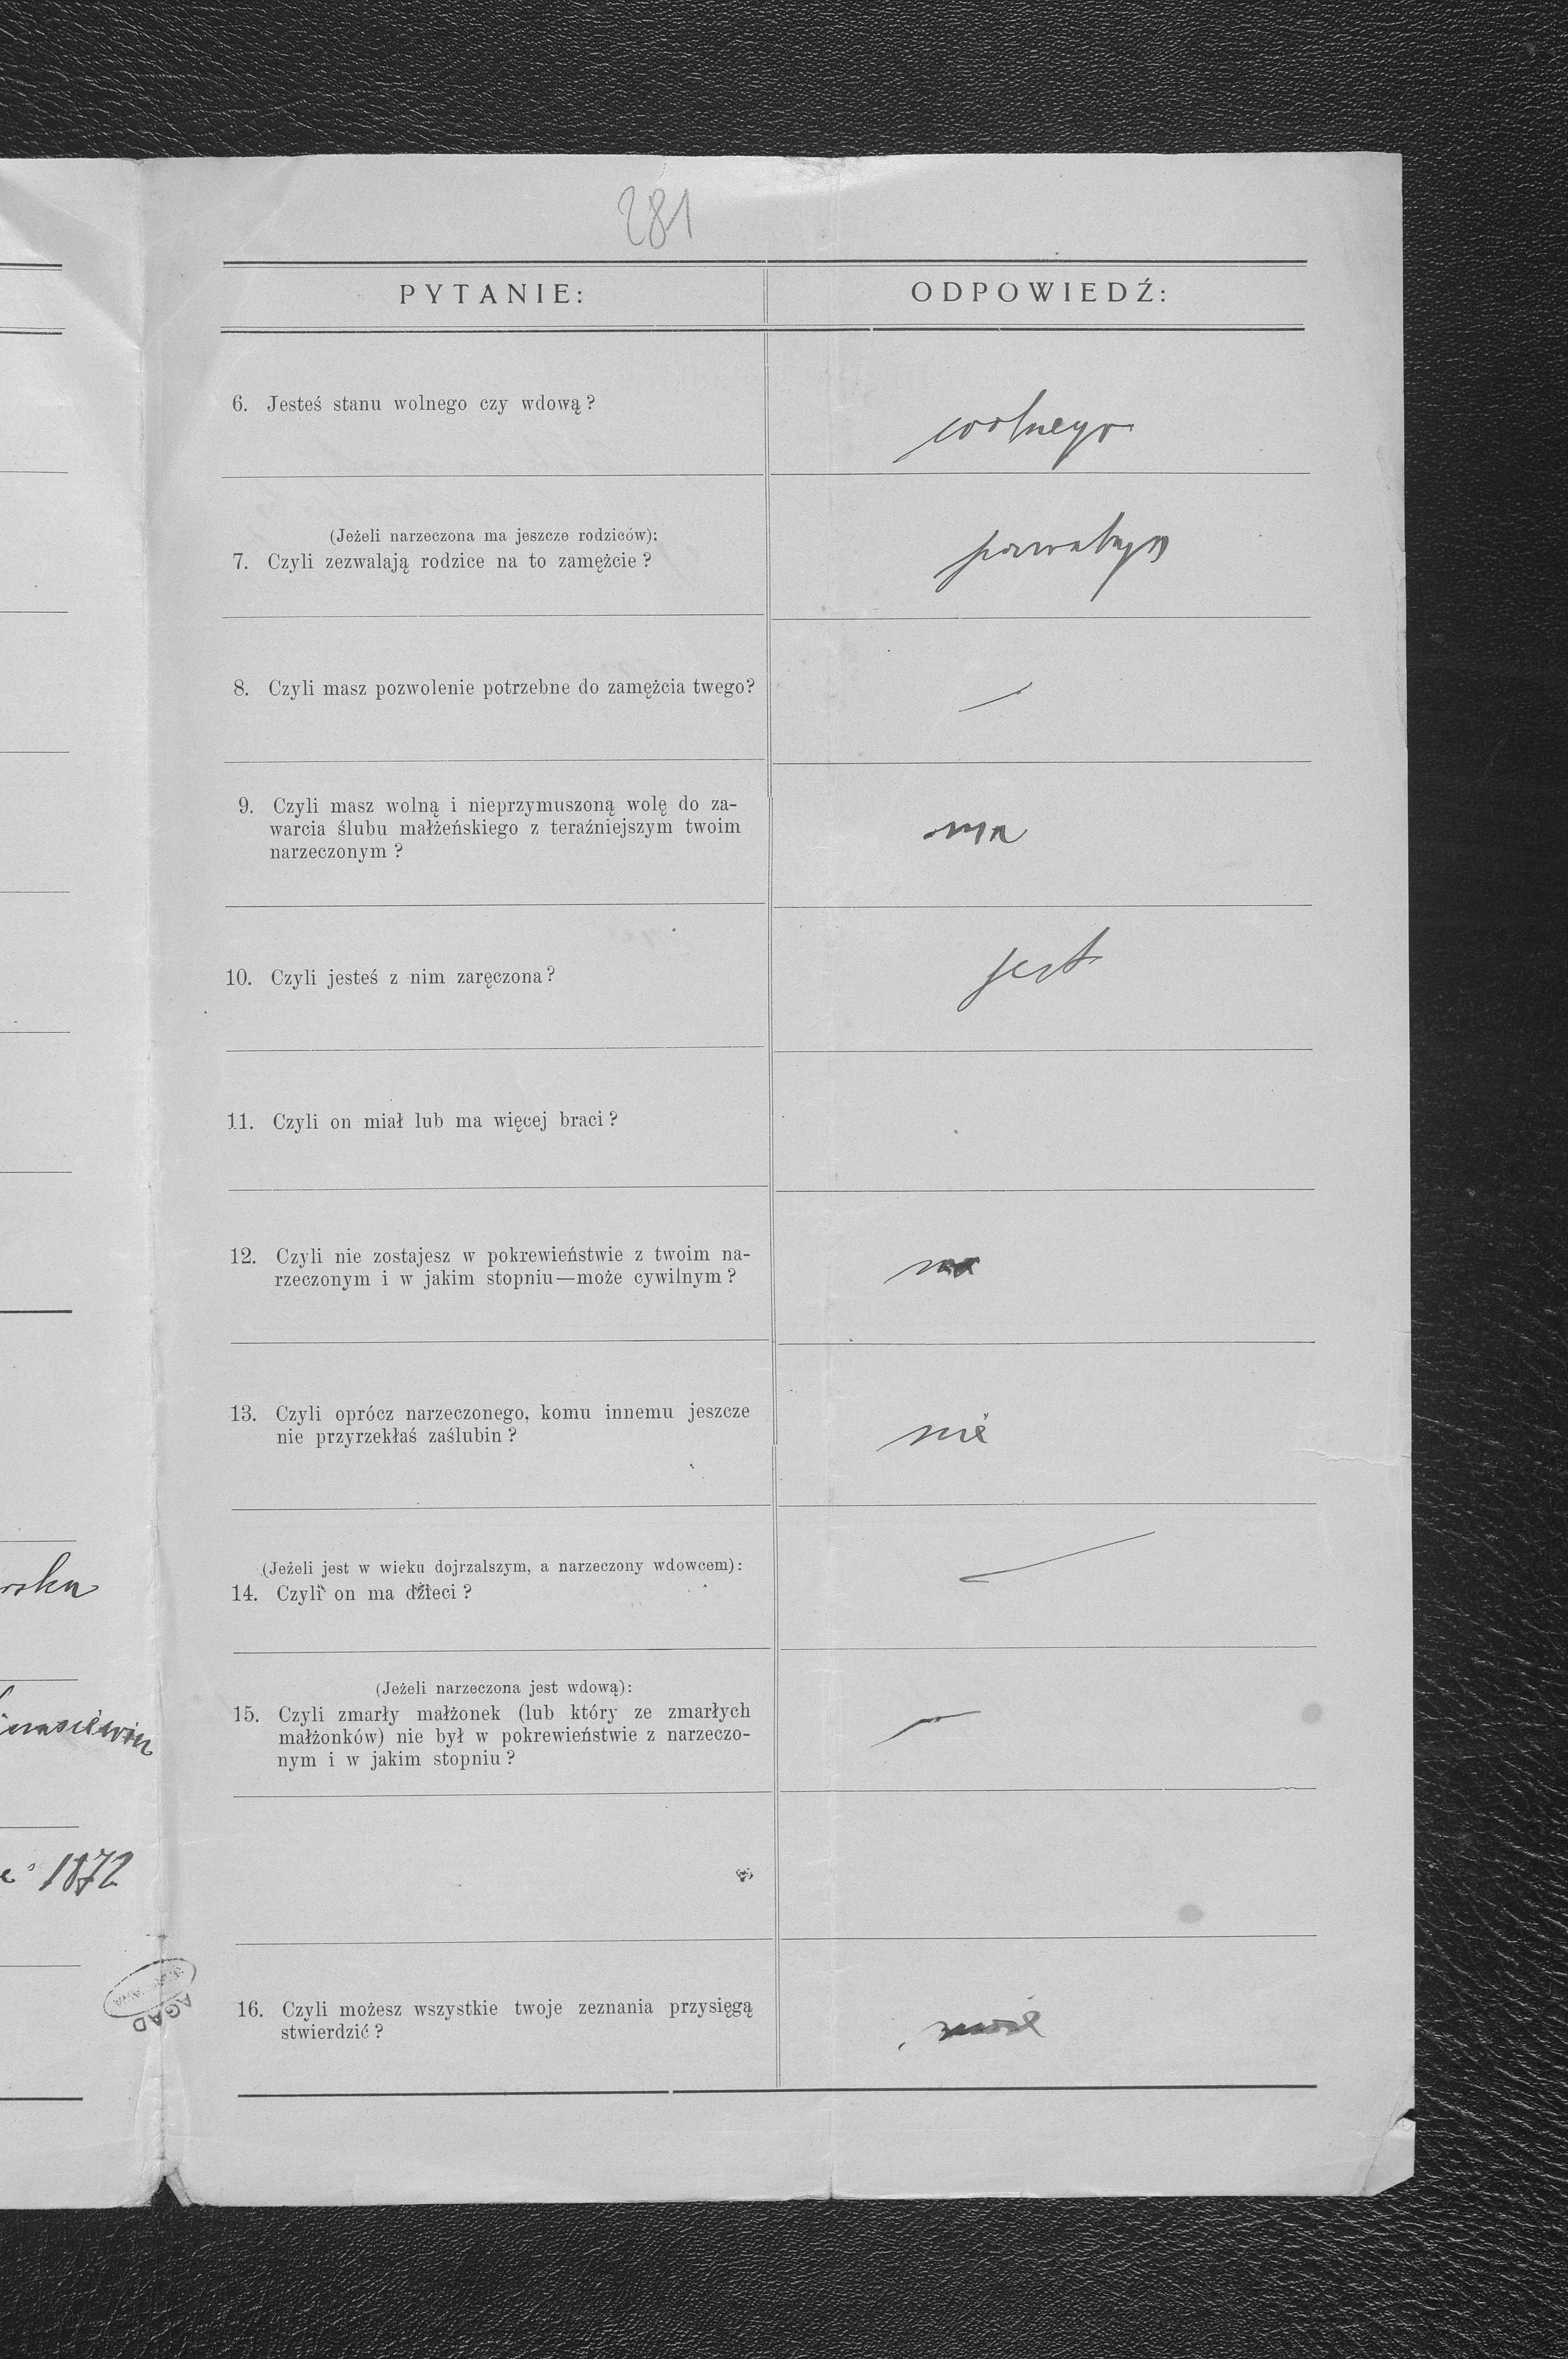 281
PYTANIE:
ODPOWIEDŹ:
6. Jesteś stanu wolnego czy wdową?
wolnego
(Jeżeli narzeczona ma jeszcze rodziców):
7. Czyli zezwalają rodzice na to zamężcie?
8. Czyli masz pozwolenie potrzebne do zamężcia twego?
—
9. Czyli masz wolną i nieprzymuszoną wolę do za-
warcia ślubu małżeńskiego z teraźniejszym twoim
narzeczonym?
ma
10. Czyli jesteś z nim zaręczona?
jest
11. Czyli on miał lub ma więcej braci?
12. Czyli nie zostajesz w pokrewieństwie z twoim na-
rzeczonym i w jakim stopniu—może cywilnym?
13. Czyli oprócz narzeczonego, komu innemu jeszcze
nie przyrzekłaś zaślubin?
nie
(Jeżeli jest w wieku dojrzalszym, a narzeczony wdowcem):
14. Czyli on ma dzieci?
—
(Jeżeli narzeczona jest wdową):
15. Czyli zmarły małżonek (lub który ze zmarłych
małżonków) nie był w pokrewieństwie z narzeczo-
nym i w jakim stopniu?
—
1872
AGAD
16. Czyli możesz wszystkie twoje zeznania przysięgą
stwierdzić?